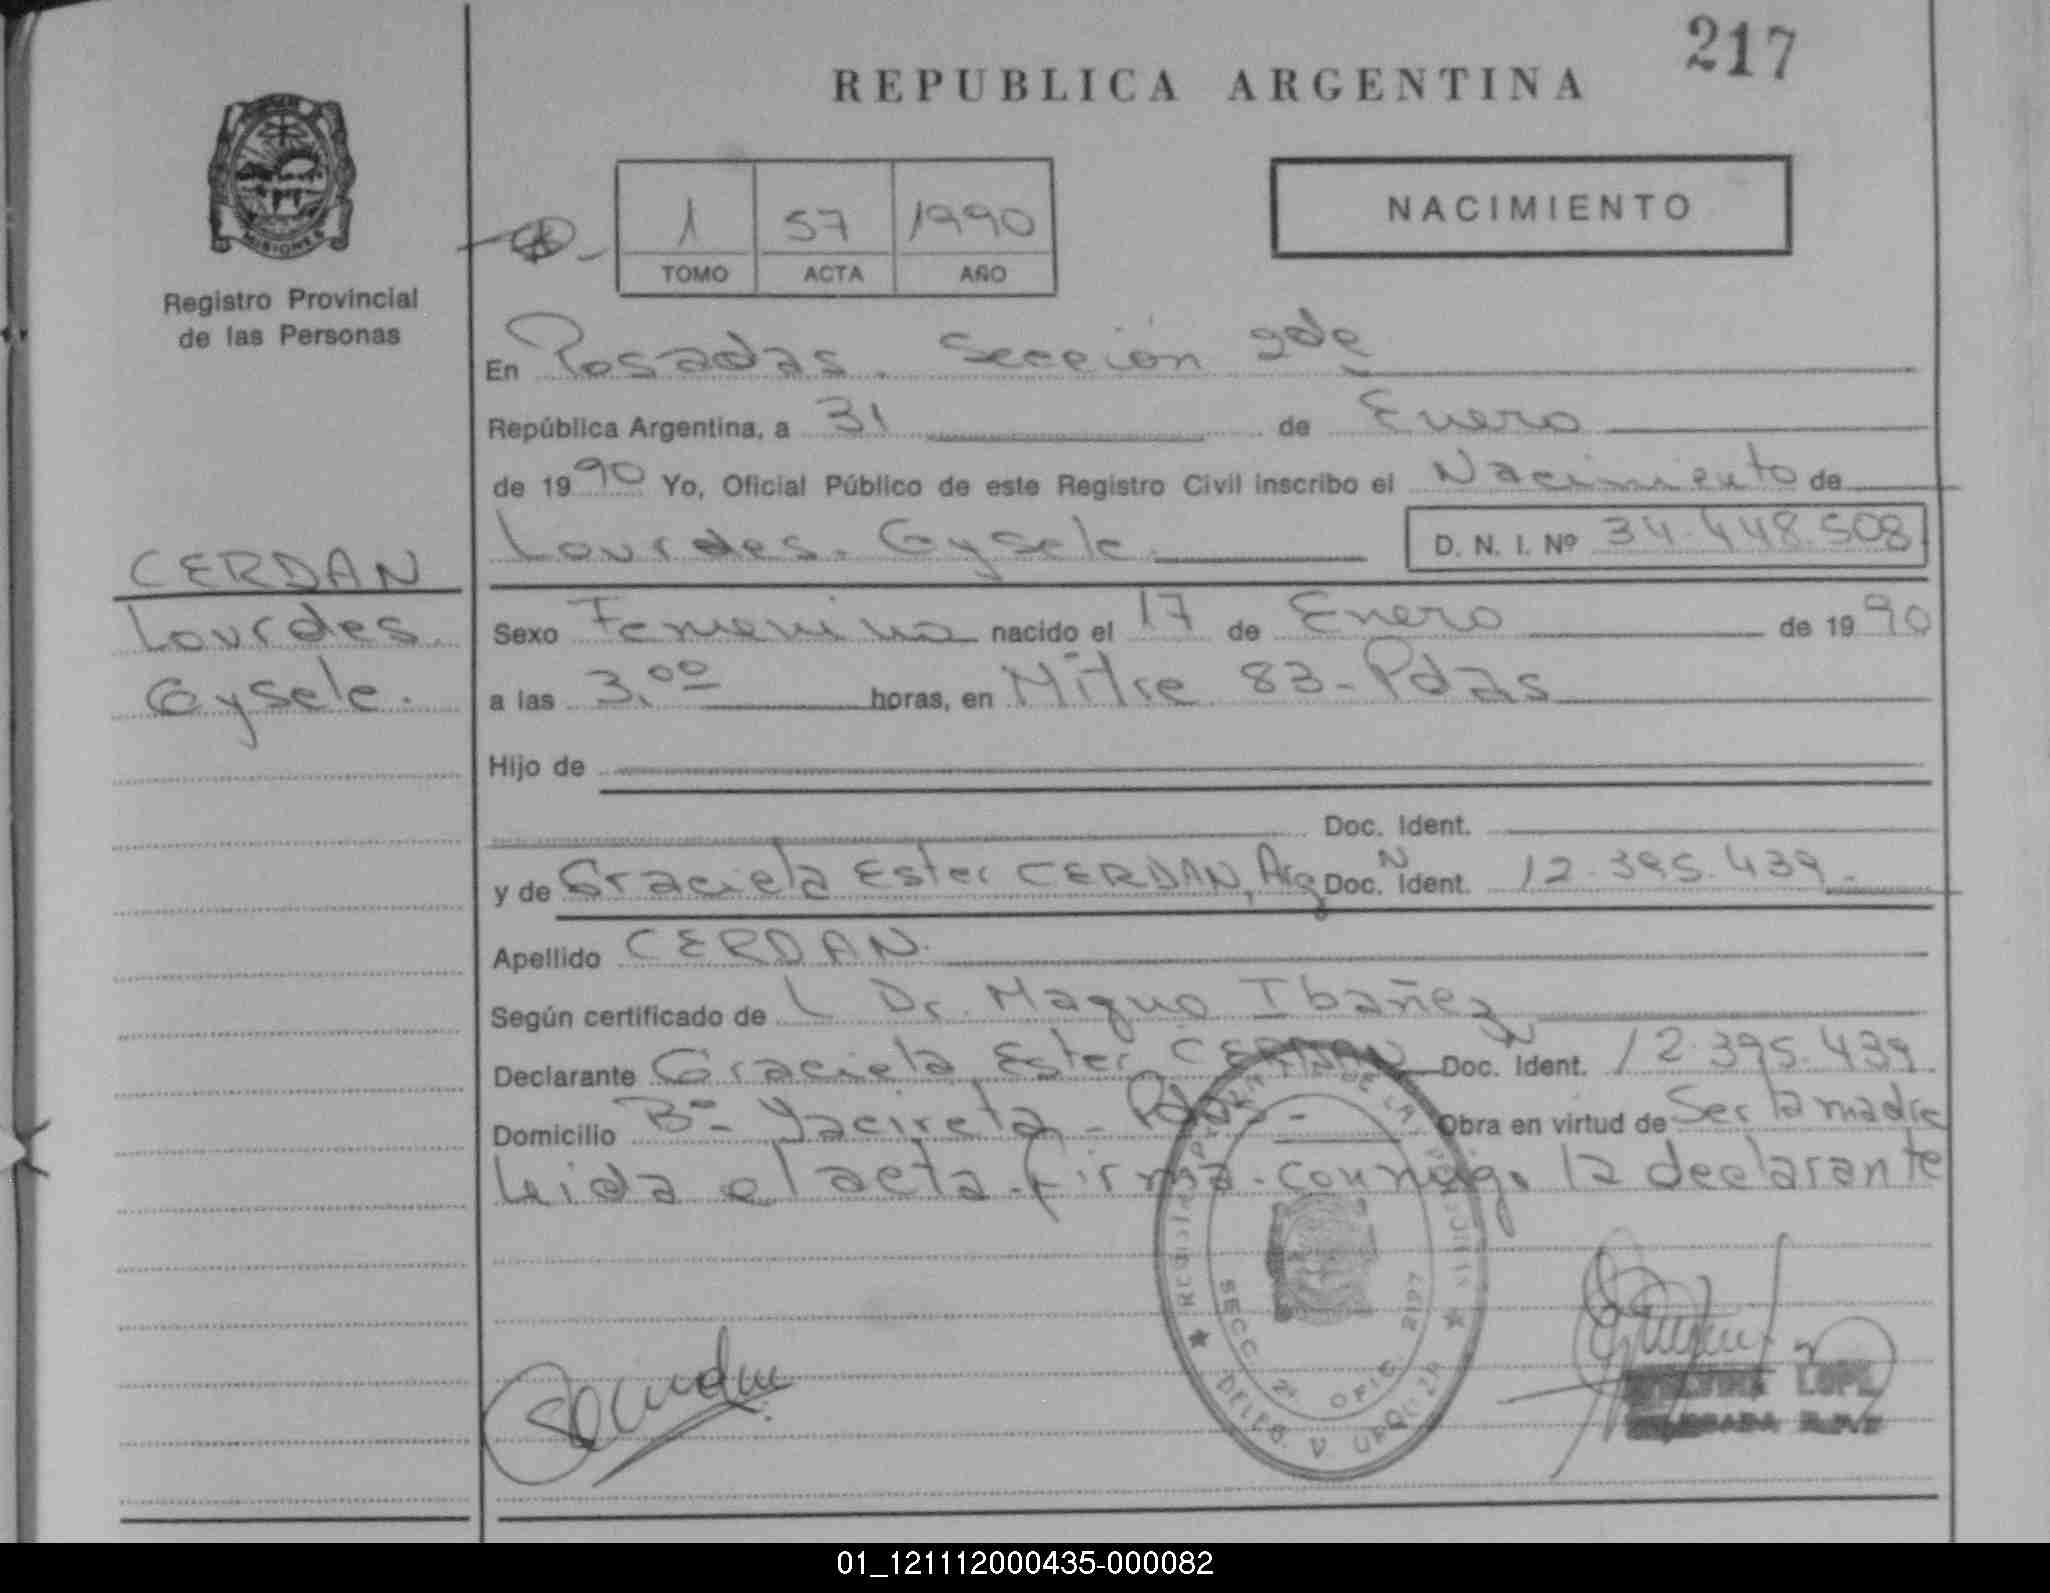 217
REPUBLICA ARGENTINA
MISIONES
Registro Provincial
de las Personas
1 57 1990
TOMO ACTA AÑO
NACIMIENTO
En Posadas. Sección 2da
República Argentina, a 31 de Enero
de 1990 Yo, Oficial Público de este Registro Civil inscribo el Nacimiento de
Lourdes. Gysele. D. N. I. Nº 34.448.508
CERDAN
Lourdes.
Gysele.
Sexo Femenino nacido el 17 de Enero de 1990
a las 3,00 horas, en Mitre 83 - Pdas
Hijo de
Doc. Ident.
y de Graciela Ester CERDAN, Arg Doc. N Ident. 12.395.439.
Apellido CERDAN.
Según certificado de L Dr. Magno Ibañez
Declarante Graciela Ester CERDAN Doc. N Ident. 12.395.439
Domicilio Bº - Yacireta - Pdas - Obra en virtud de Ser la madre
Leida el acta. firma. conmigo la declarante
SECC. 2ª OFIC. 2197
DELEG. V. URQUIZA
01_121112000435-000082